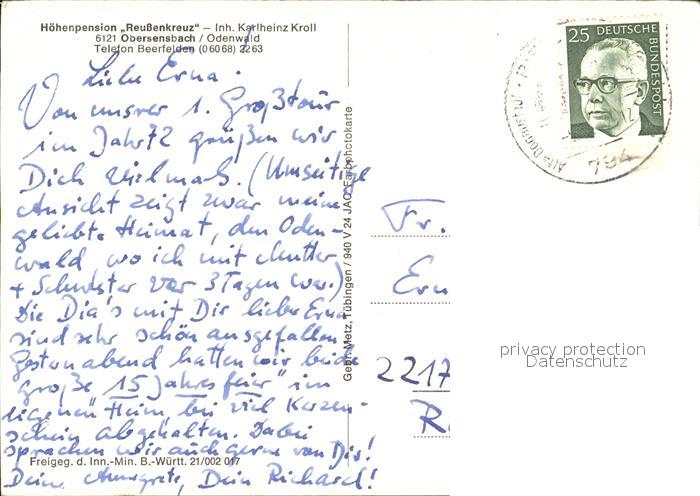 Höhenpension „Reußenkreuz" – Inh. Karlheinz Kroll
6121 Obersensbach / Odenwald
Telefon Beerfelden (06068) 2263
Liebe Erna.
Von unsrer 1. Großtour
im Jahr 72 grüßen wir
Dich vielmals. (Umseitige
Ansicht zeigt zwar meine
geliebte Heimat, den Oden-
wald wo ich mit Mutter
+ Schwester vor 3 Tagen war.)
Die Dia's mit Dir liebe Erna
sind sehr schön ausgefallen.
Gestern abend hatten wir beide
große "15 Jahresfeier" im
eigenen Heim, bei viel Kerzen-
schein abgehalten. Dabei
sprachen wir auch gerne von Dir!
Deine Annegrete, Dein Richard!
Freigeg. d. Inn.-Min. B.-Württ. 21/002 017
Gebr. Metz, Tübingen / 940 V 24 JAC Farbphotokarte
25 DEUTSCHE
BUNDESPOST
794
Fr.
Ern
2217
R
privacy protection
Datenschutz